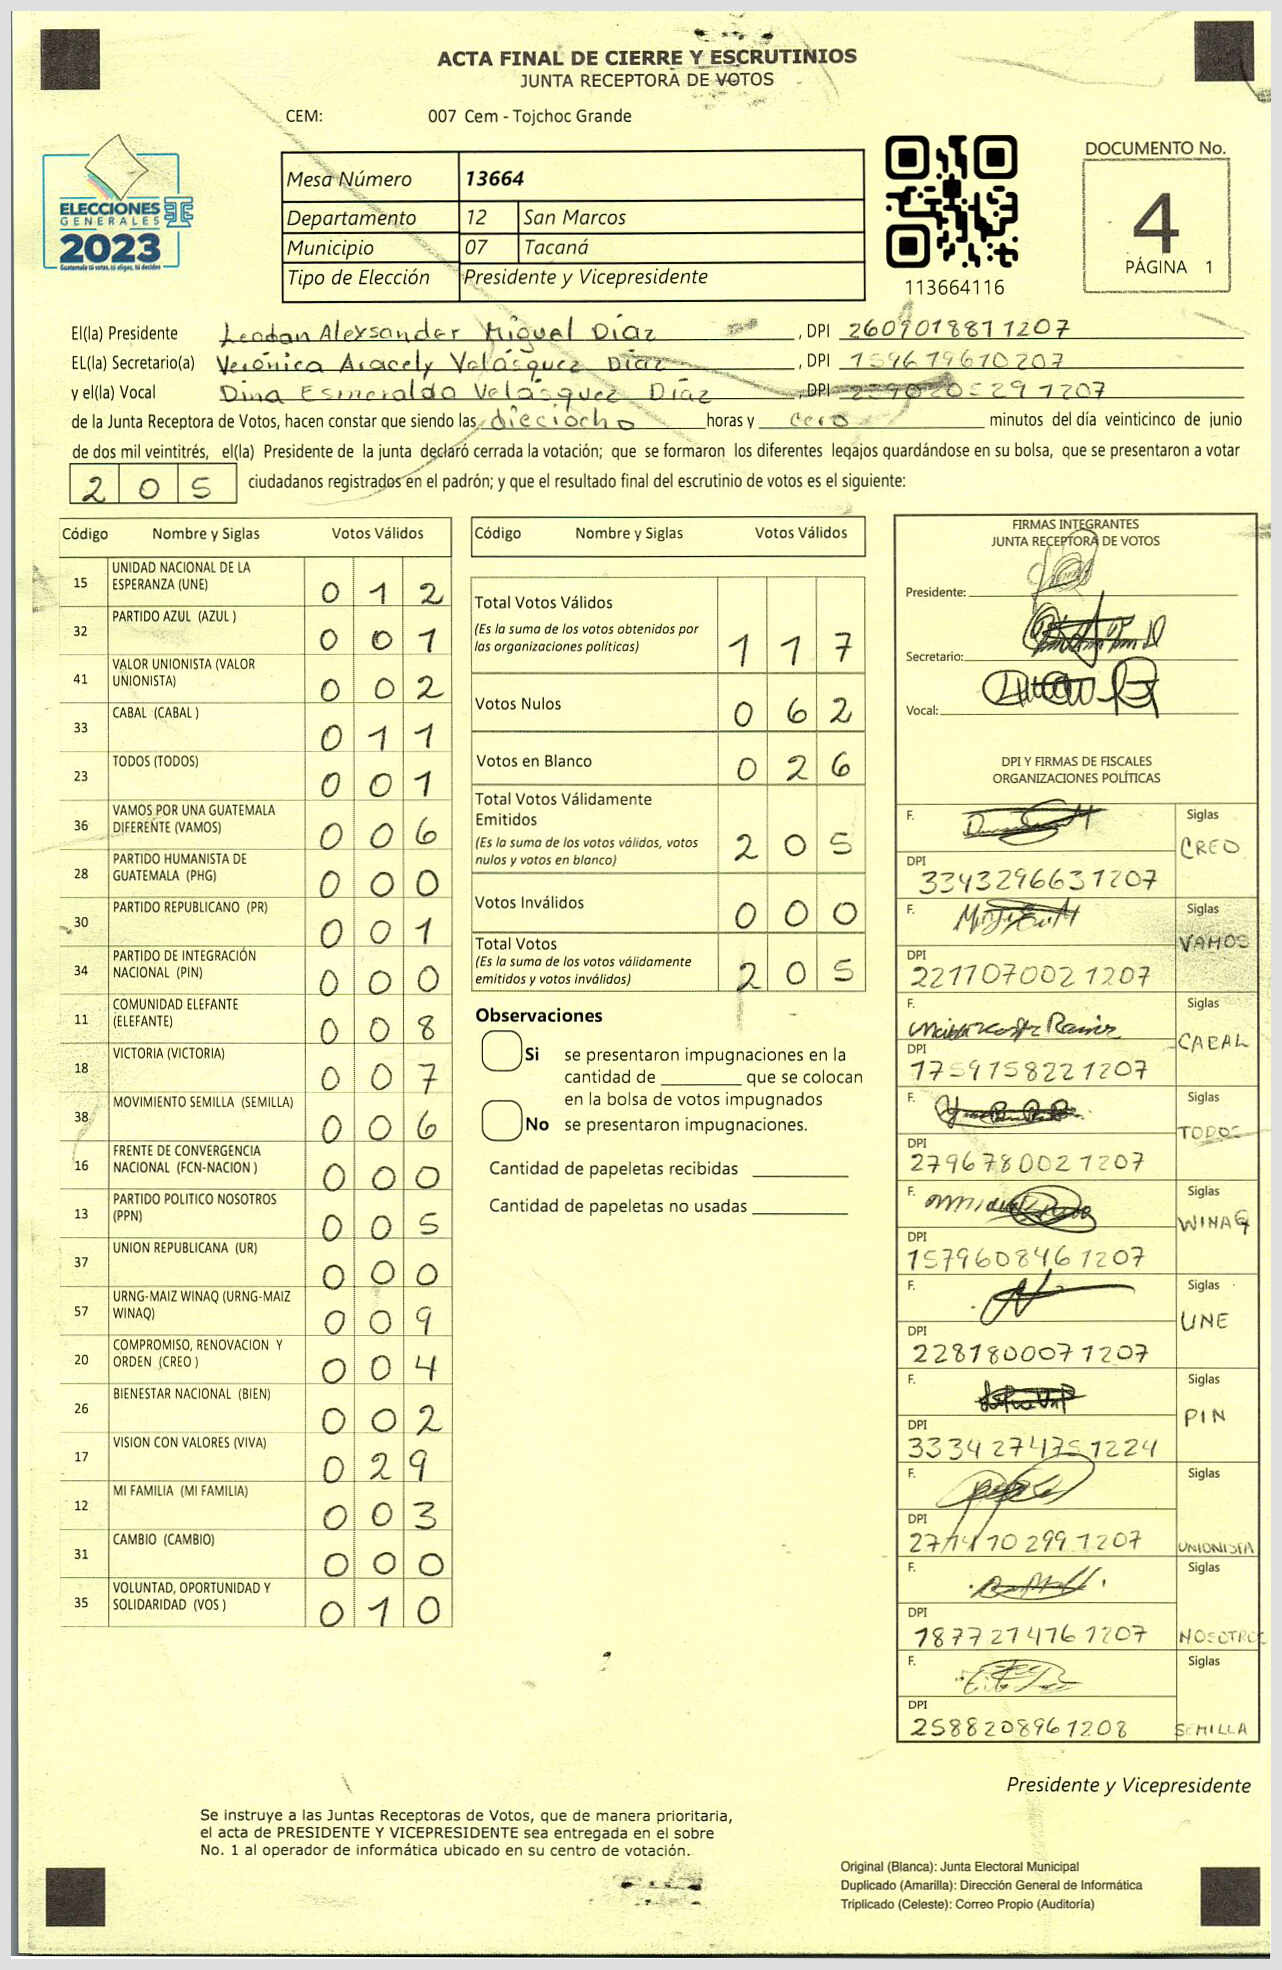 ACTA FINAL DE CIERRE Y ESCRUTINIOS
JUNTA RECEPTORA DE VOTOS
CEM: 007 Cem - Tojchoc Grande
ELECCIONES
GENERALES
2023
Guatemala tú votas, tú eliges, tú decides
Mesa Número 13664
Departamento 12 San Marcos
Municipio 07 Tacaná
Tipo de Elección Presidente y Vicepresidente
113664116
DOCUMENTO No.
4
PÁGINA 1
El(la) Presidente Leodan Alexsander Miguel Díaz, DPI 2609018811207
EL(la) Secretario(a) Verónica Aracely Velásquez Díaz, DPI 159619610207
y el(la) Vocal Dina Esmeralda Velásquez Díaz, DPI
de la Junta Receptora de Votos, hacen constar que siendo las dieciocho horas y cero minutos del día veinticinco de junio
de dos mil veintitrés, el(la) Presidente de la junta declaró cerrada la votación; que se formaron los diferentes legajos guardándose en su bolsa, que se presentaron a votar
205 ciudadanos registrados en el padrón; y que el resultado final del escrutinio de votos es el siguiente:
Código Nombre y Siglas Votos Válidos
15 UNIDAD NACIONAL DE LA ESPERANZA (UNE) 012
32 PARTIDO AZUL (AZUL ) 001
41 VALOR UNIONISTA (VALOR UNIONISTA) 002
33 CABAL (CABAL ) 011
23 TODOS (TODOS) 001
36 VAMOS POR UNA GUATEMALA DIFERENTE (VAMOS) 006
28 PARTIDO HUMANISTA DE GUATEMALA (PHG) 000
30 PARTIDO REPUBLICANO (PR) 001
34 PARTIDO DE INTEGRACIÓN NACIONAL (PIN) 000
11 COMUNIDAD ELEFANTE (ELEFANTE) 008
18 VICTORIA (VICTORIA) 007
38 MOVIMIENTO SEMILLA (SEMILLA) 006
16 FRENTE DE CONVERGENCIA NACIONAL (FCN-NACION ) 000
13 PARTIDO POLITICO NOSOTROS (PPN) 005
37 UNION REPUBLICANA (UR) 000
57 URNG-MAIZ WINAQ (URNG-MAIZ WINAQ) 009
20 COMPROMISO, RENOVACION Y ORDEN (CREO ) 004
26 BIENESTAR NACIONAL (BIEN) 002
17 VISION CON VALORES (VIVA) 029
12 MI FAMILIA (MI FAMILIA) 003
31 CAMBIO (CAMBIO) 000
35 VOLUNTAD, OPORTUNIDAD Y SOLIDARIDAD (VOS ) 010
Código Nombre y Siglas Votos Válidos
Total Votos Válidos
(Es la suma de los votos obtenidos por
las organizaciones politicas) 117
Votos Nulos 062
Votos en Blanco 026
Total Votos Válidamente
Emitidos
(Es la suma de los votos válidos, votos
nulos y votos en blanco) 205
Votos Inválidos 000
Total Votos
(Es la suma de los votos válidamente
emitidos y votos inválidos) 205
Observaciones
Si se presentaron impugnaciones en la
cantidad de ________ que se colocan
en la bolsa de votos impugnados
No se presentaron impugnaciones.
Cantidad de papeletas recibidas
Cantidad de papeletas no usadas
FIRMAS INTEGRANTES
JUNTA RECEPTORA DE VOTOS
Presidente:
Secretario:
Vocal:
DPI Y FIRMAS DE FISCALES
ORGANIZACIONES POLÍTICAS
F. Siglas CREO
DPI 3343296631207
F. Siglas VAMOS
DPI 2211070021207
F. Siglas CABAL
DPI 1759158221207
F. Siglas TODOS
DPI 2796780021207
F. Siglas WINAQ
DPI 1579608461207
F. Siglas UNE
DPI 2281800071207
F. Siglas PIN
DPI 3334274751224
F. Siglas UNIONISTA
DPI
F. Siglas NOSOTROS
DPI 1877274761207
F. Siglas SEMILLA
DPI 2588208961208
Presidente y Vicepresidente
Se instruye a las Juntas Receptoras de Votos, que de manera prioritaria,
el acta de PRESIDENTE Y VICEPRESIDENTE sea entregada en el sobre
No. 1 al operador de informática ubicado en su centro de votación.
Original (Blanca): Junta Electoral Municipal
Duplicado (Amarilla): Dirección General de Informática
Triplicado (Celeste): Correo Propio (Auditoría)